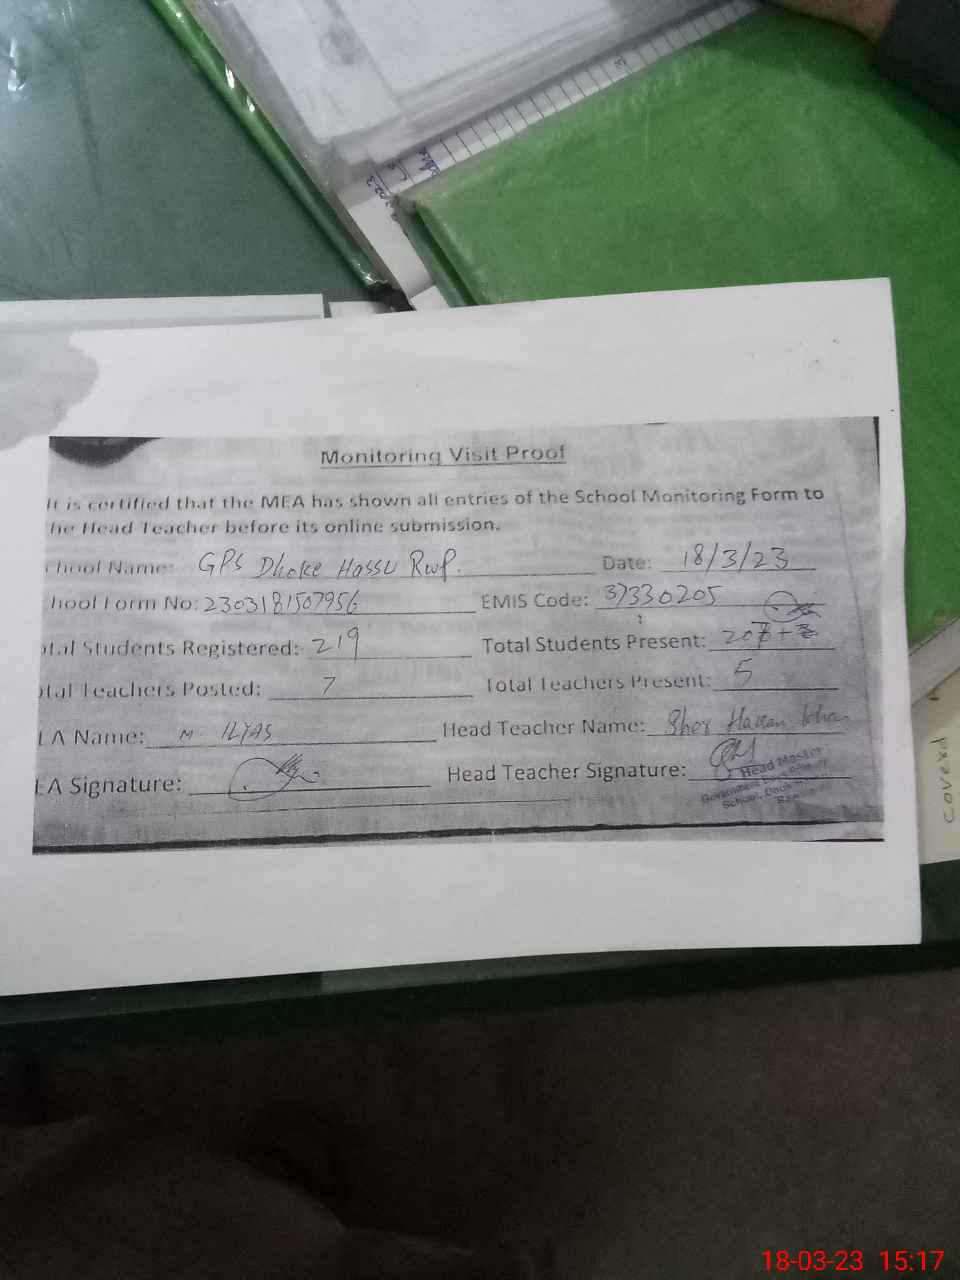 Monitoring Visit Proof
It is certified that the MEA has shown all entries of the School Monitoring Form to
he Head Teacher before its online submission.
chool Name: GPS Dhoke Hassu Rwp. Date: 18/3/23
hool Form No: 2303181507956 EMIS Code: 37330205
otal Students Registered: 219 Total Students Present: 20
otal Teachers Posted: 7 Total Teachers Present: 5
EA Name: M. ILYAS Head Teacher Name: Sher Hassan Khan
EA Signature: Head Teacher Signature:
Head Master
Government
School, Dhok
coverd
18-03-23 15:17